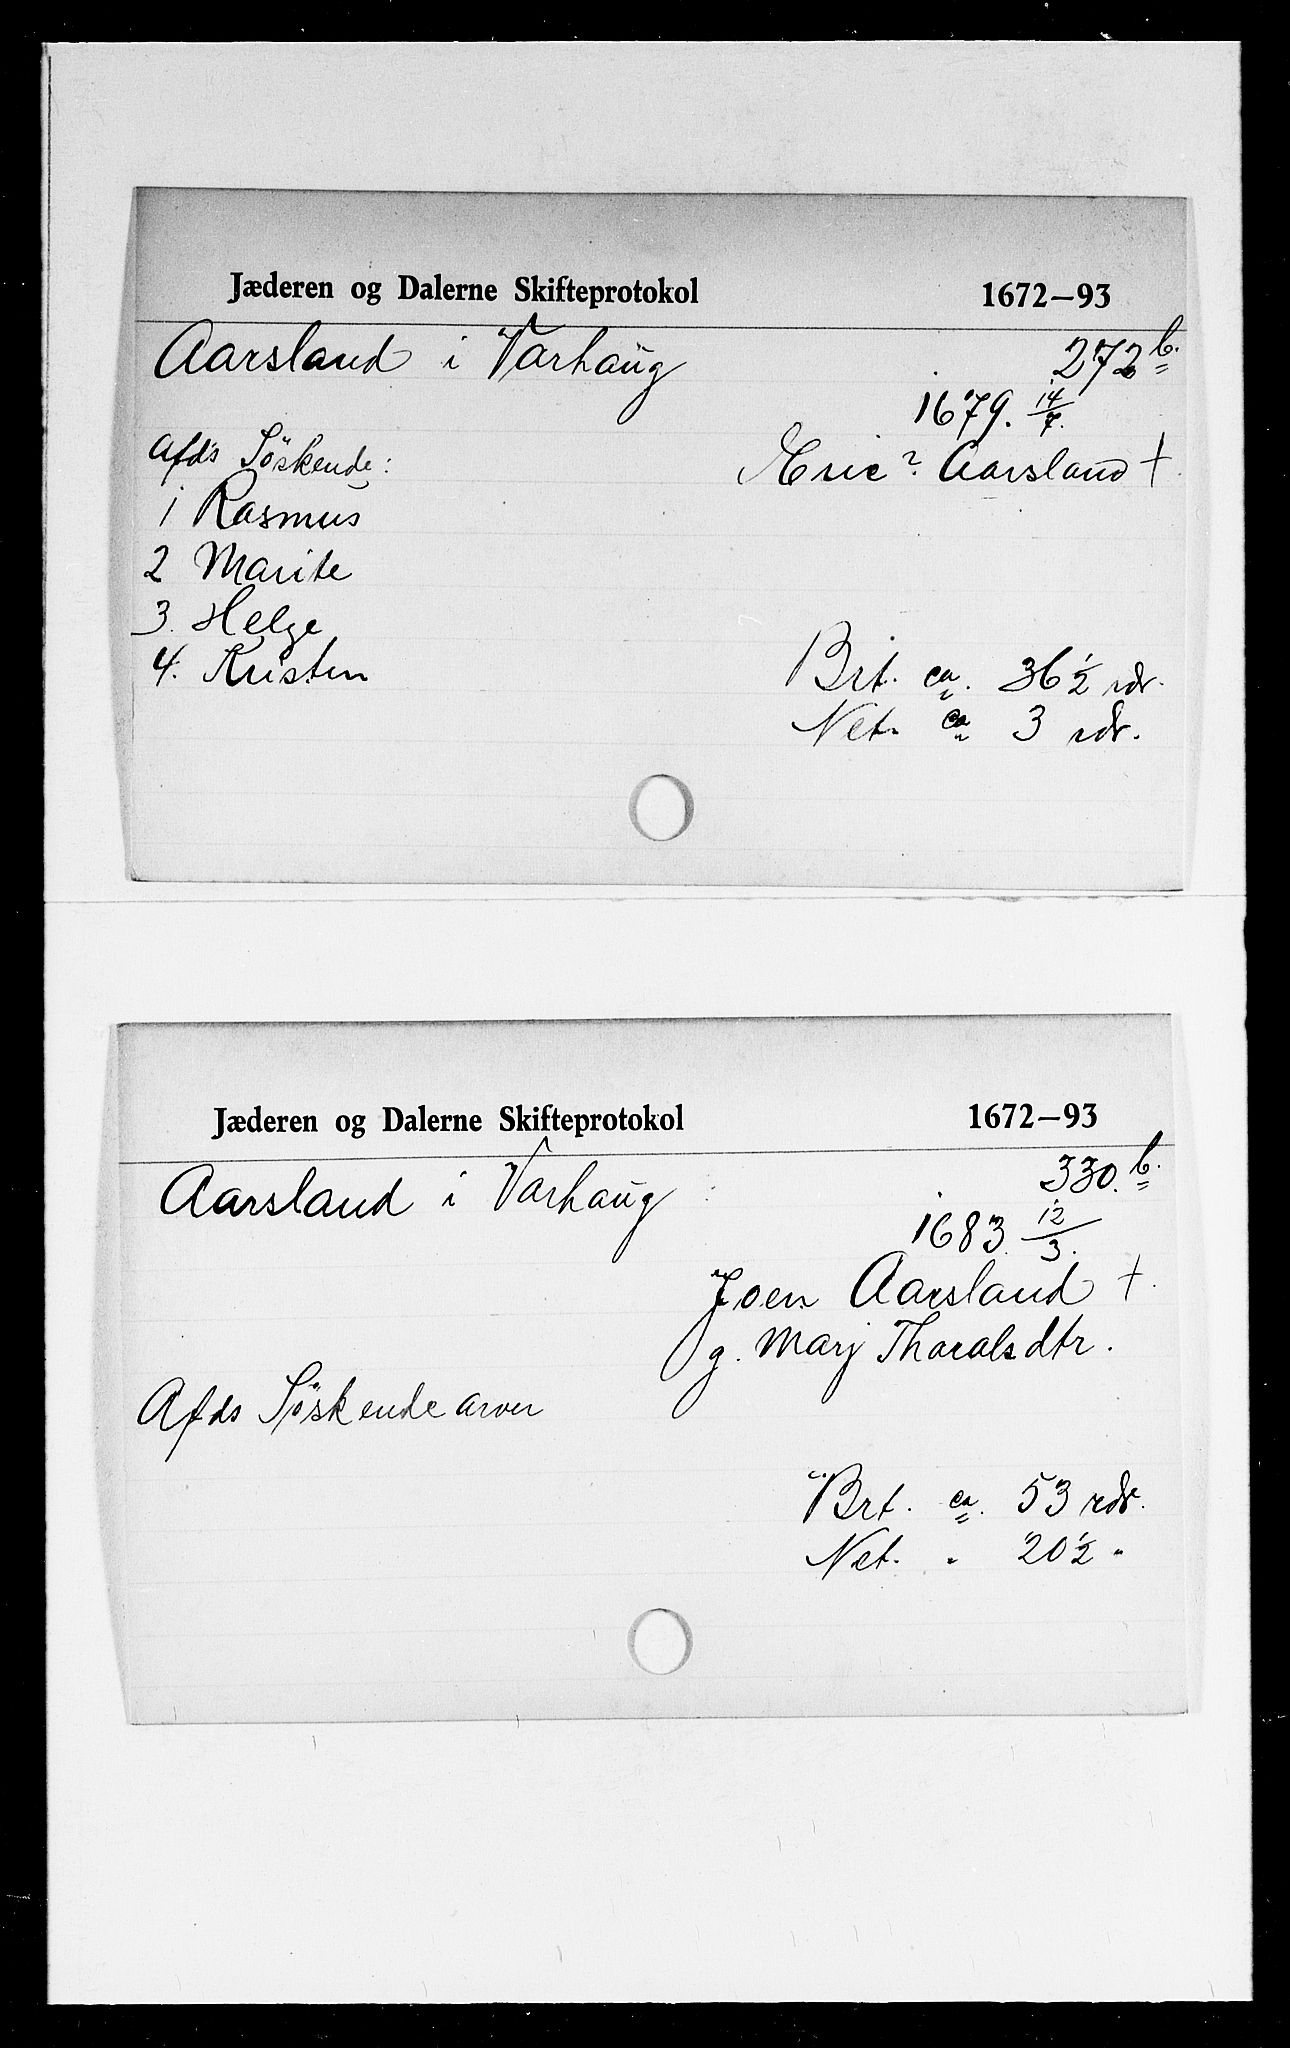 Jæderen og Dalerne Skifteprotokol 1672–93
Aarsland i Varhaug 272 b.
1679. 14/7.
Afds Söskende: Eric? Aarsland †
1 Rasmus
2 Marite
3. Helge
4. Kristen Brt. ca. 36 1/2 rdr.
Net. ca 3 rdr.
Jæderen og Dalerne Skifteprotokol 1672–93
Aarsland i Varhaug 330. b.
1683 12/3.
Joen Aarsland †.
g. Marj Tharalsdtr.
Afds Söskende arver
Brt. ca. 53 rdr.
Net. " 20 1/2 "